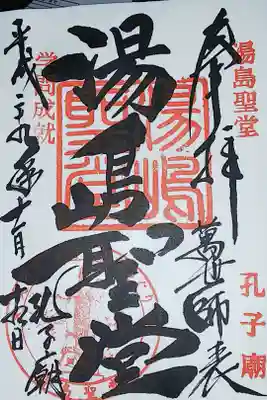 湯島聖堂
奉拝
萬世師表
孔子廟
湯島聖堂
湯島聖堂
学高成就
平成二九年十一月
孔子廟